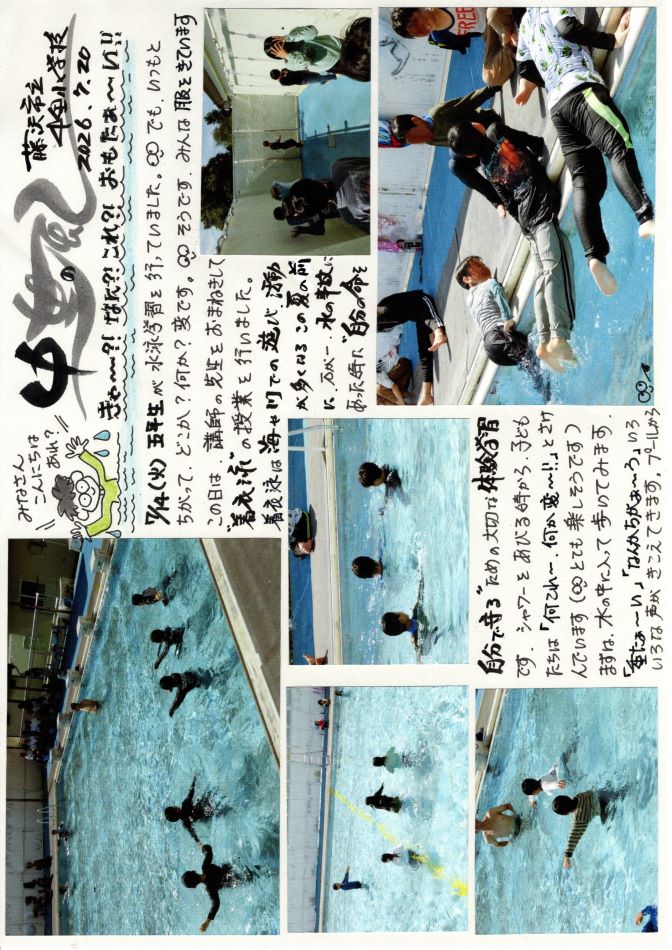 藤沢市立
小学校
2026.7.20
中の風
みなさん
こんにちは
あれ?
きゃ〜?! なに?! これ?! おもたぁ〜い!!
7/14(火) 五年生が水泳学習を行っていました。∞でも、いつもと
ちがって、どこか?何か?変です。∞そうです、みんな服をきています
この日は、講師の先生をおまねきして
"着衣泳"の授業を行いました。
着衣泳は海や川での遊び、活動
が多くなるこの夏の前
に、万が一、水の事故に
あった時に"自分の命を
自分で守る"ための大切な体験学習
です。シャワーをあびる時から、子ども
たちは「何これ〜、何か変〜!」とさけ
んでいます(∞とても楽しそうです)
まずは、水の中に入って歩いてみます。
「重たぁ〜い」「なんかちがぁ〜う」いろ
いろな声がきこえてきます。プールから
FREE